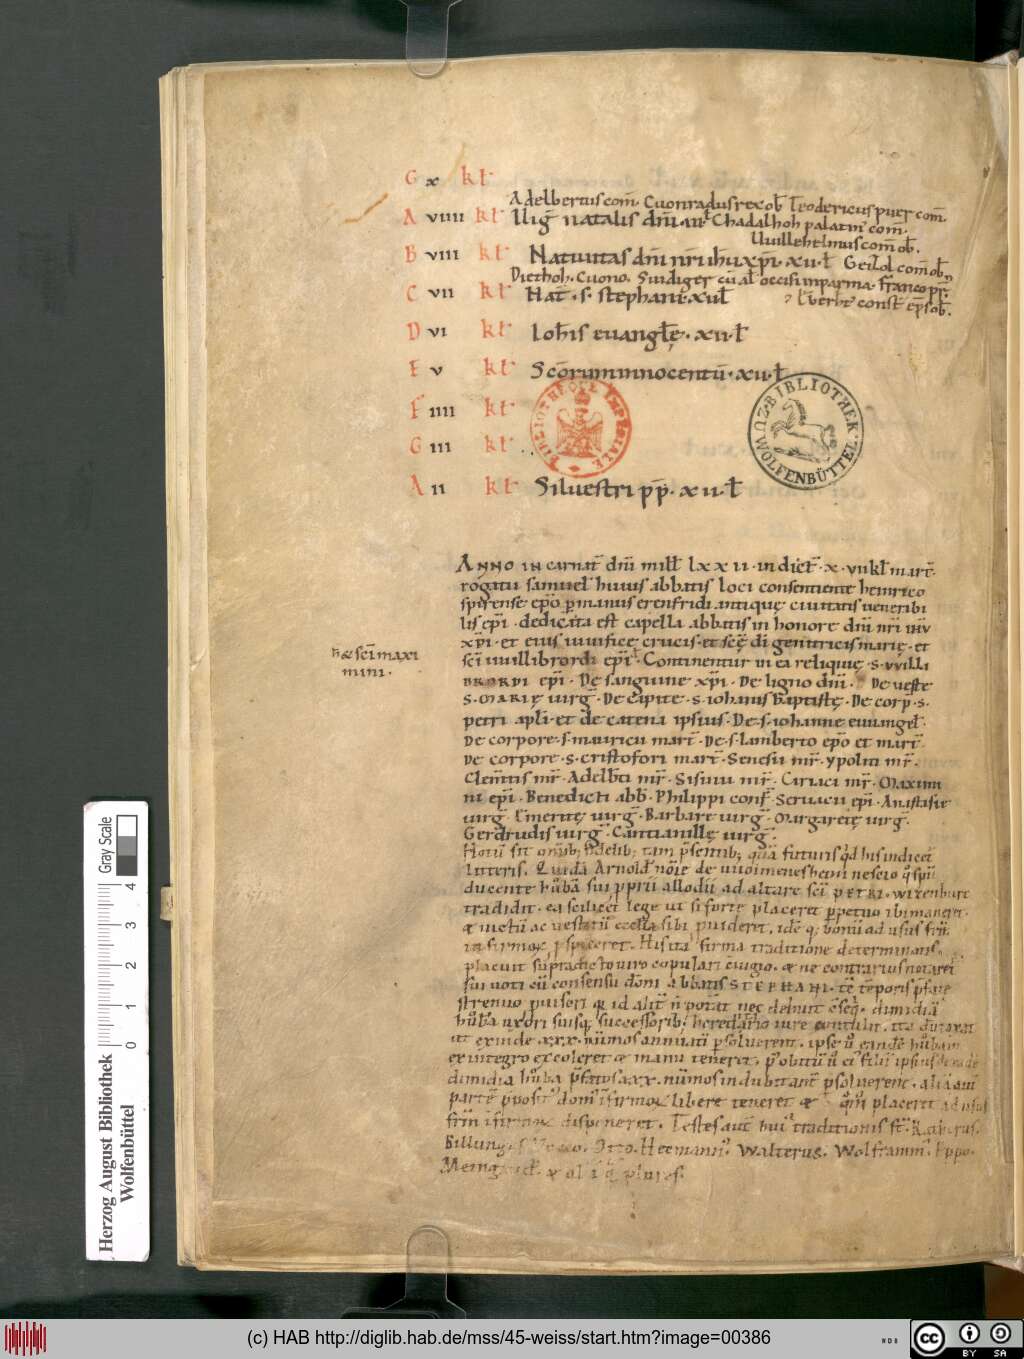 G x kł
Adelbertus com̄. Cuonradus rex ob̄. Teodericus puer com̄.
A viiii kł Uig̅ natalis dn̄i. Chadalhoh palatin᷒ com̄.
Uuillehelmus com̄ ob̄.
B viii kł Natiuitas dn̄i nr̄i ihū xp̄i. xii. ł Gerlol com̄ ob̄
Diethoh. Cuono. Suidiger cū al̄ occisi in parma. Franco pp̄.
C vii kł Nat̄. s. stephani. xii ł
D vi kł Ioh̄is euangl̄ę. xii. ł
E v kł Scōrum innocentū. xii. ł
F iiii kł
G iii kł
A ii kł Siluestri pp̄. xii. ł
BIBLIOTHÈQUE IMPÉRIALE
BIBLIOTHEK ZU WOLFENBÜTTEL.
Anno incarnat̄ dn̄i mill̄ lxxii. indict̄. x. vii kl̄ mart̄.
rogatu samuel᷒ huius abbatis loci consentiente heinrico
spirense ep̄o p̱ manus erenfridi antiquę ciuitatis uenerabi
lis ep̄i. dedicata est capella abbatis in honore dn̄i nr̄i ihū
xp̄i. et eius uiuificę crucis. et scē di genitricis marię. et
sc̄i uuillibrordi ep̄i. Continentur in ea reliquię. s. uuilli
brordi ep̄i. De sanguine xp̄i. De ligno dn̄i. De ueste
s. marię uirg̅. De capite. s. iohannis baptistę. De corp̄. s.
petri apl̄i. et de catena ipsius. De. s. iohanne euuangel̄.
De corpore. s. mauricii mart̄. De. s. lamberto ep̄o et mart̄.
De corpore. s. cristofori mart̄. Senesii mr̄. ypoliti mr̄.
Clem̄tis mr̄. Adelb̄ti mr̄. Sisinii mr̄. Ciriaci mr̄. Maximi
ni ep̄i. Benedicti abb̄. Philippi conf̄. Seruacii ep̄i. Anastasie
uirg̅. Emeritę uirg̅. Barbare uirg̅. Margaretę uirg̅.
Gerdrudis uirg̅. Cantianillę uirg̅.
h̄ & sc̄i maxi
mini.
Notū sit omīb; fidelib; tam p̄sentib; quā futuris qd̄ his indicet
litteris. Quidā Arnold᷒ noīe de uuoimenesheim nescio q᷒ sp̄u
ducente hůbā sui pp̄rii allodii ad altare sc̄i PETRI. wizenburc
tradidit. ea scilicet lege ut si forte placeret p̱petuo ibi maneret.
& uictū ac uestitū cella sibi p̱uideret. idē q; bonū ad usus fr̄m
infirmoꝝ p̱spiceret. His ita firma traditione determinatis.
placuit supradicto uiro copulari cōiugio. & ne contrarius notaret
sui uoti cū consensu dom̄i abbatis STEPHANI. tē tēporis
strenuo puisori q᷒ id alit̄ n̄ potat̄ nec debuit ēseq. dimidiā
hůbā uxori suisq; successorib; hereditario iure contulit. ita dūtaxat
ut exinde .xxx. nūmos annuatī p̱soluerent. ipse u᷒ eandē hůbam
ex integro excoleret & manu teneret. p̱᷒ obitū u᷒
dimidia hůba p̄fatos .xxx. nūmos indubitant̄ p̱soluerent. aliā aūt
partē p̱posit᷒ dom᷒ īfirmoꝝ libere teneret & placeret ad usus
fr̄m īfirmoꝝ disponeret. Testes aūt hui᷒ traditionis st̄.
Billung. Otto. Hermann᷒. Walterus. Wolframm᷒. Eppo.
Meingaud᷒. & alii q̄ plures.
Herzog August Bibliothek
Wolfenbüttel
0 1 2 3 4
Gray Scale
(c) HAB http://diglib.hab.de/mss/45-weiss/start.htm?image=00386
WDB
cc BY SA